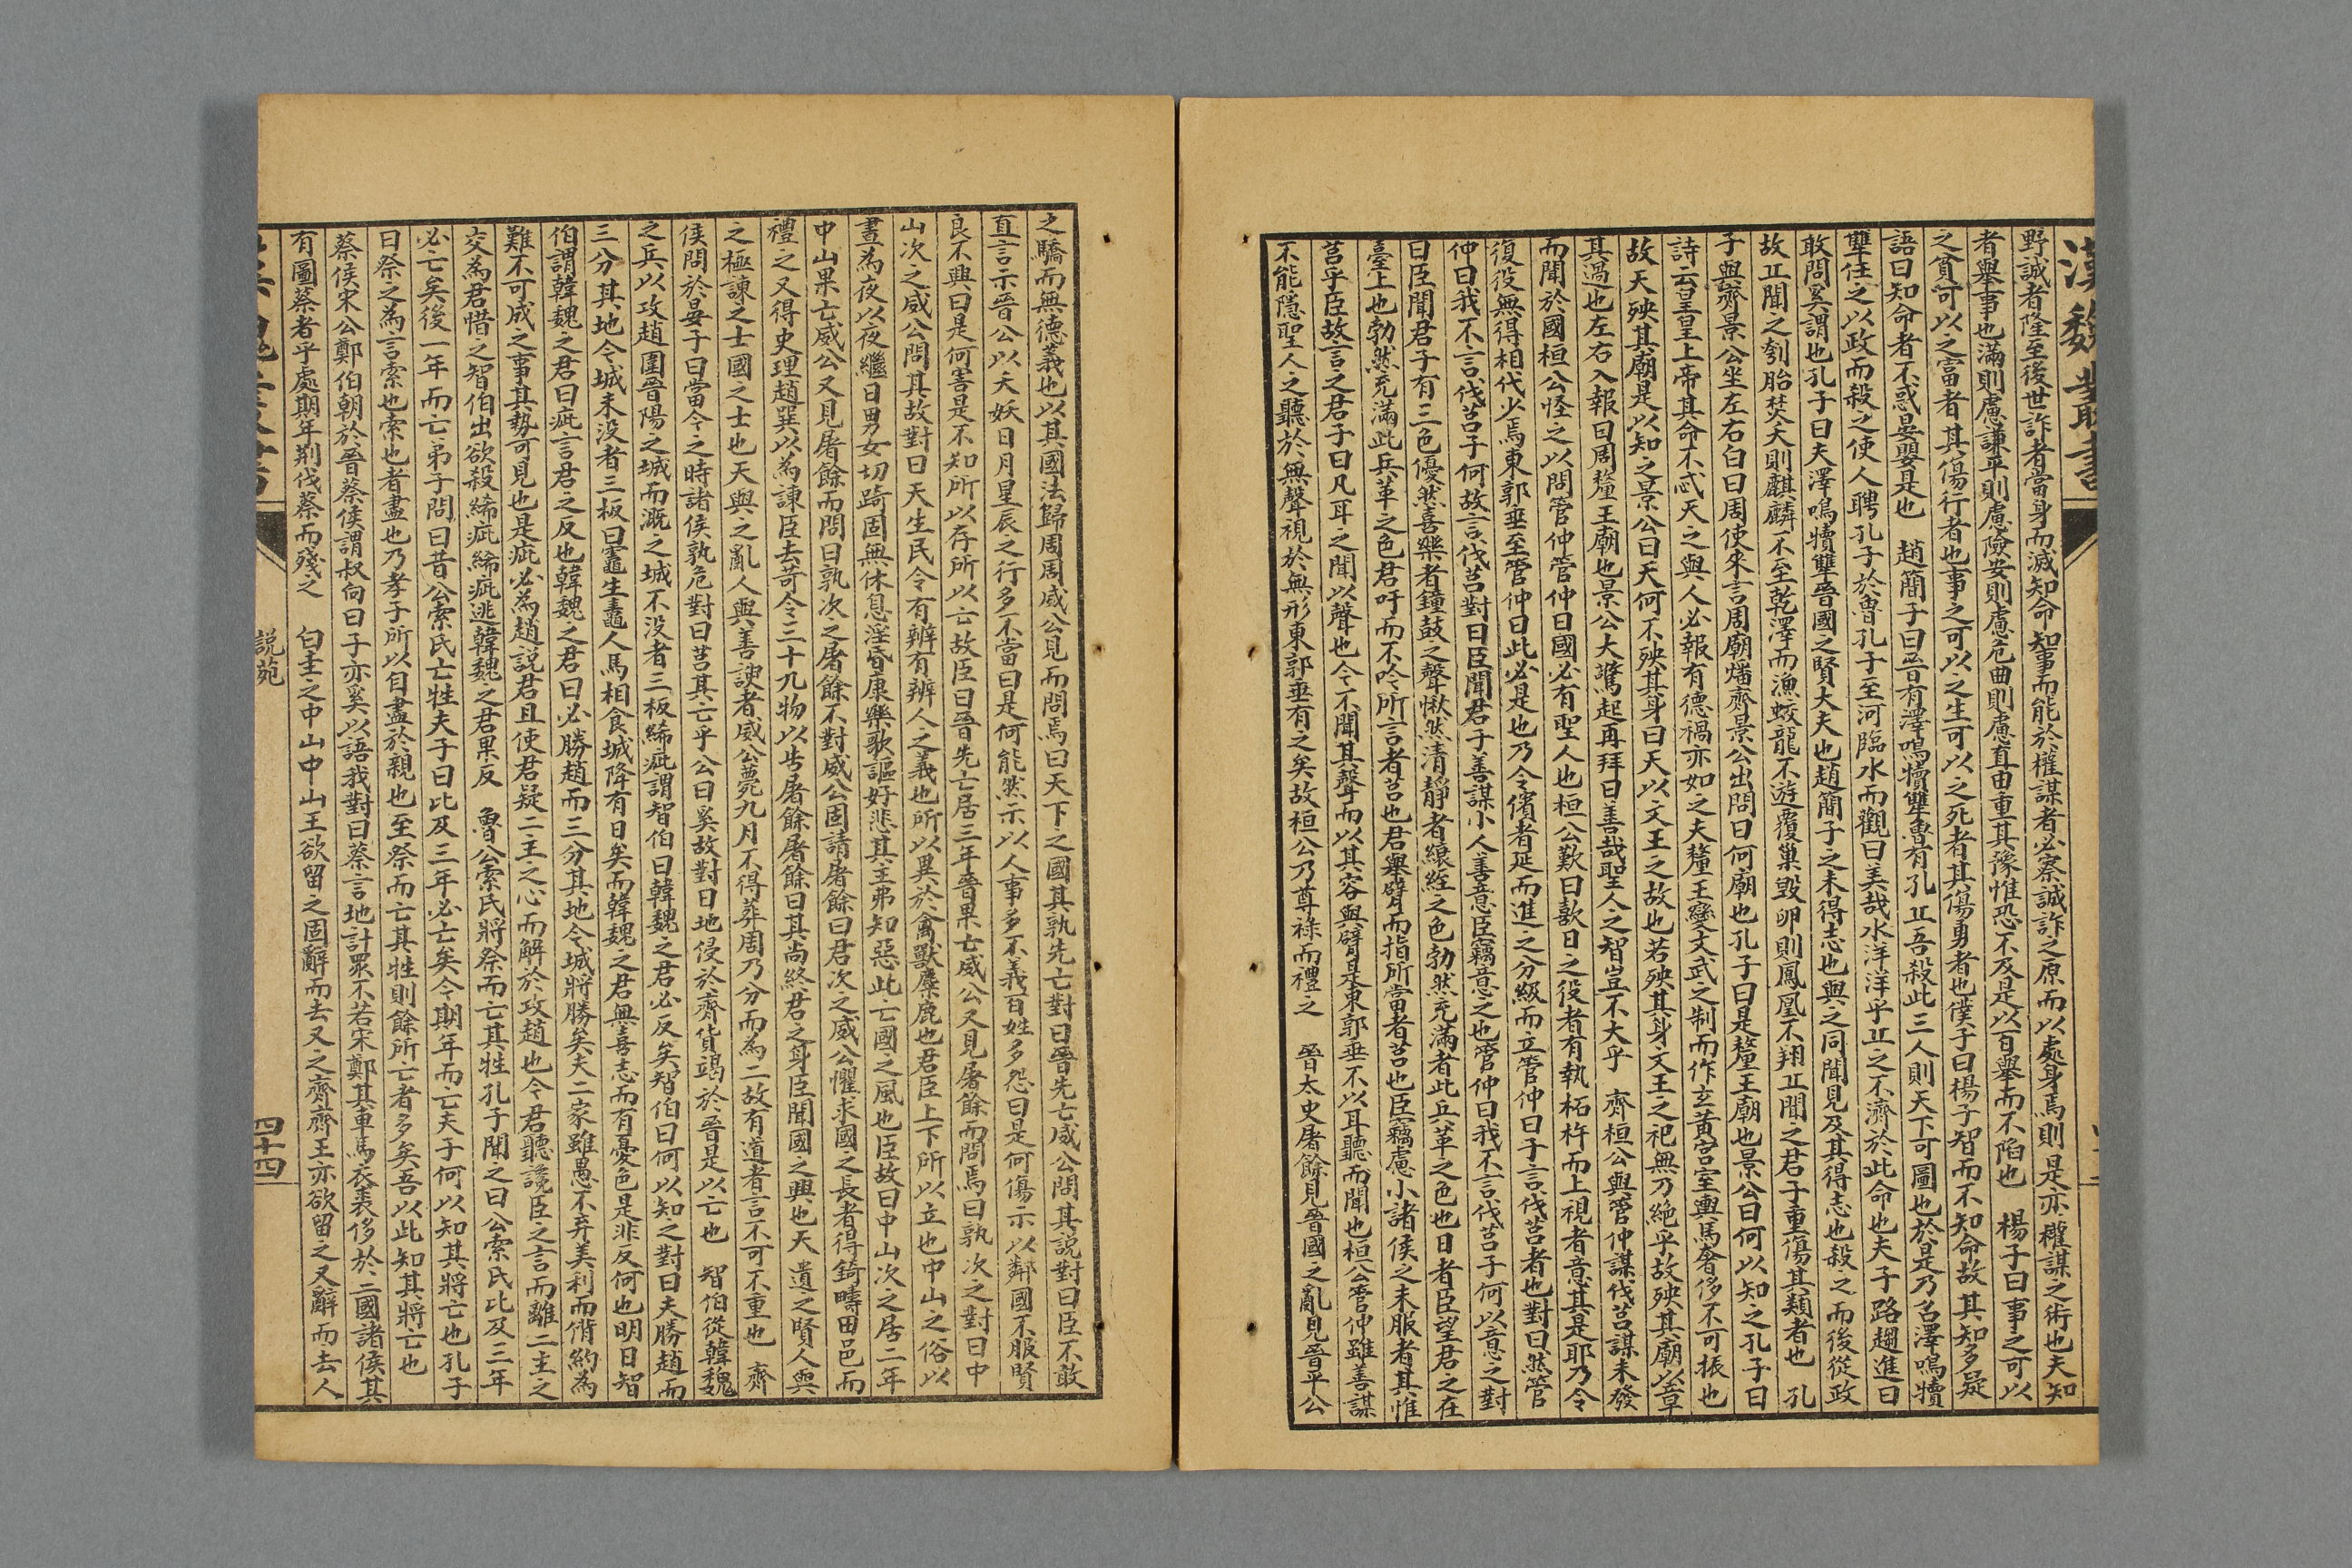 漢魏叢書
野誠者隆至後世詐者當身而滅知命知事而能於權謀者必察誠詐之原而以處身焉則是亦權謀之術也夫知
者舉事也滿則慮謙平則慮險安則慮危曲則慮直由重其豫惟恐不及是以百舉而不陷也　楊子曰事之可以
之貧可以之富者其傷行者也事之可以之生可以之死者其傷勇者也僕子曰楊子智而不知命故其知多疑
語曰知命者不惑晏嬰是也　趙簡子曰晉有澤鳴犢犨魯有孔丘吾殺此三人則天下可圖也於是乃召澤鳴犢
犨任之以政而殺之使人聘孔子於魯孔子至河臨水而觀曰美哉水洋洋乎丘之不濟於此命也夫子路趨進曰
敢問奚謂也孔子曰夫澤鳴犢犨晉國之賢大夫也趙簡子之未得志也與之同聞見及其得志也殺之而後從政
故丘聞之刳胎焚夭則麒麟不至乾澤而漁蛟龍不遊覆巢毀卵則鳳凰不翔丘聞之君子重傷其類者也　孔
子與齊景公坐左右白曰周使來言周廟燔齊景公出問曰何廟也孔子曰是釐王廟也景公曰何以知之孔子曰
詩云皇皇上帝其命不忒天之與人必報有德禍亦如之夫釐王變文武之制而作玄黃宮室輿馬奢侈不可振也
故天殃其廟是以知之景公曰天何不殃其身曰天以文王之故也若殃其身文王之祀無乃絶乎故殃其廟以章
其過也左右入報曰周釐王廟也景公大驚起再拜曰善哉聖人之智豈不大乎　齊桓公與管仲謀伐莒謀未發
而聞於國桓公怪之以問管仲管仲曰國必有聖人也桓公歎曰歖日之役者有執柘杵而上視者意其是耶乃令
復役無得相代少焉東郭垂至管仲曰此必是也乃令儐者延而進之分級而立管仲曰子言伐莒者也對曰然管
仲曰我不言伐莒子何故言伐莒對曰臣聞君子善謀小人善意臣竊意之也管仲曰我不言伐莒子何以意之對
曰臣聞君子有三色優然喜樂者鐘鼓之聲愀然清靜者縗絰之色勃然充滿者此兵革之色也日者臣望君之在
臺上也勃然充滿此兵革之色君吁而不吟所言者莒也君舉臂而指所當者莒也臣竊慮小諸侯之未服者其惟
莒乎臣故言之君子曰凡耳之聞以聲也今不聞其聲而以其容與臂是東郭垂不以耳聽而聞也桓公管仲雖善謀
不能隱聖人之聽於無聲視於無形東郭垂有之矣故桓公乃尊祿而禮之　晉太史屠餘見晉國之亂見晉平公
之驕而無德義也以其國法歸周周威公見而問焉曰天下之國其孰先亡對曰晉先亡威公問其說對曰臣不敢
直言示晉公以天妖日月星辰之行多不當曰是何能然示以人事多不義百姓多怨曰是何傷示以鄰國不服賢
良不興曰是何害是不知所以存所以亡故臣曰晉先亡居三年晉果亡威公又見屠餘而問焉曰孰次之對曰中
山次之威公問其故對曰天生民令有辨有辨人之義也所以異於禽獸麋鹿也君臣上下所以立也中山之俗以
晝為夜以夜繼日男女切踦固無休息淫昏康樂歌謳好悲其主弗知惡此亡國之風也臣故曰中山次之居二年
中山果亡威公又見屠餘而問曰孰次之屠餘不對威公固請屠餘曰君次之威公懼求國之長者得錡疇田邑而
禮之又得史理趙巽以為諫臣去苛令三十九物以告屠餘屠餘曰其尚終君之身臣聞國之興也天遺之賢人與
之極諫之士國之士也天與之亂人與善諛者威公薨九月不得葬周乃分而為二故有道者言不可不重也　齊
侯問於晏子曰當今之時諸侯孰危對曰莒其亡乎公曰奚故對曰地侵於齊貨竭於晉是以亡也　智伯從韓魏
之兵以攻趙圍晉陽之城而溉之城不沒者三板絺疵謂智伯曰韓魏之君必反矣智伯曰何以知之對曰夫勝趙而
三分其地今城未没者三板曰竈生鼃人馬相食城降有日矣而韓魏之君無喜志而有憂色是非反何也明日智
伯謂韓魏之君曰疵言君之反也韓魏之君曰必勝趙而三分其地今城將勝矣夫二家雖愚不弃美利而偝約為
難不可成之事其勢可見也是疵必為趙說君且使君疑二主之心而解於攻趙也今君聽讒臣之言而離二主之
交為君惜之智伯出欲殺絺疵絺疵逃韓魏之君果反　魯公索氏將祭而亡其牲孔子聞之曰公索氏比及三年
必亡矣後一年而亡弟子問曰昔公索氏亡牲夫子曰比及三年必亡矣今期年而亡夫子何以知其將亡也孔子
曰祭之為言索也索也者盡也乃孝子所以自盡於親也至祭而亡其牲則餘所亡者多矣吾以此知其將亡也
蔡侯宋公鄭伯朝於晉蔡侯謂叔向曰子亦奚以語我對曰蔡言地計眾不若宋鄭其車馬衣裘侈於二國諸侯其
有圖蔡者乎處期年荆伐蔡而殘之　白圭之中山中山王欲留之固辭而去又之齊齊王亦欲留之又辭而去人
說苑
四十四